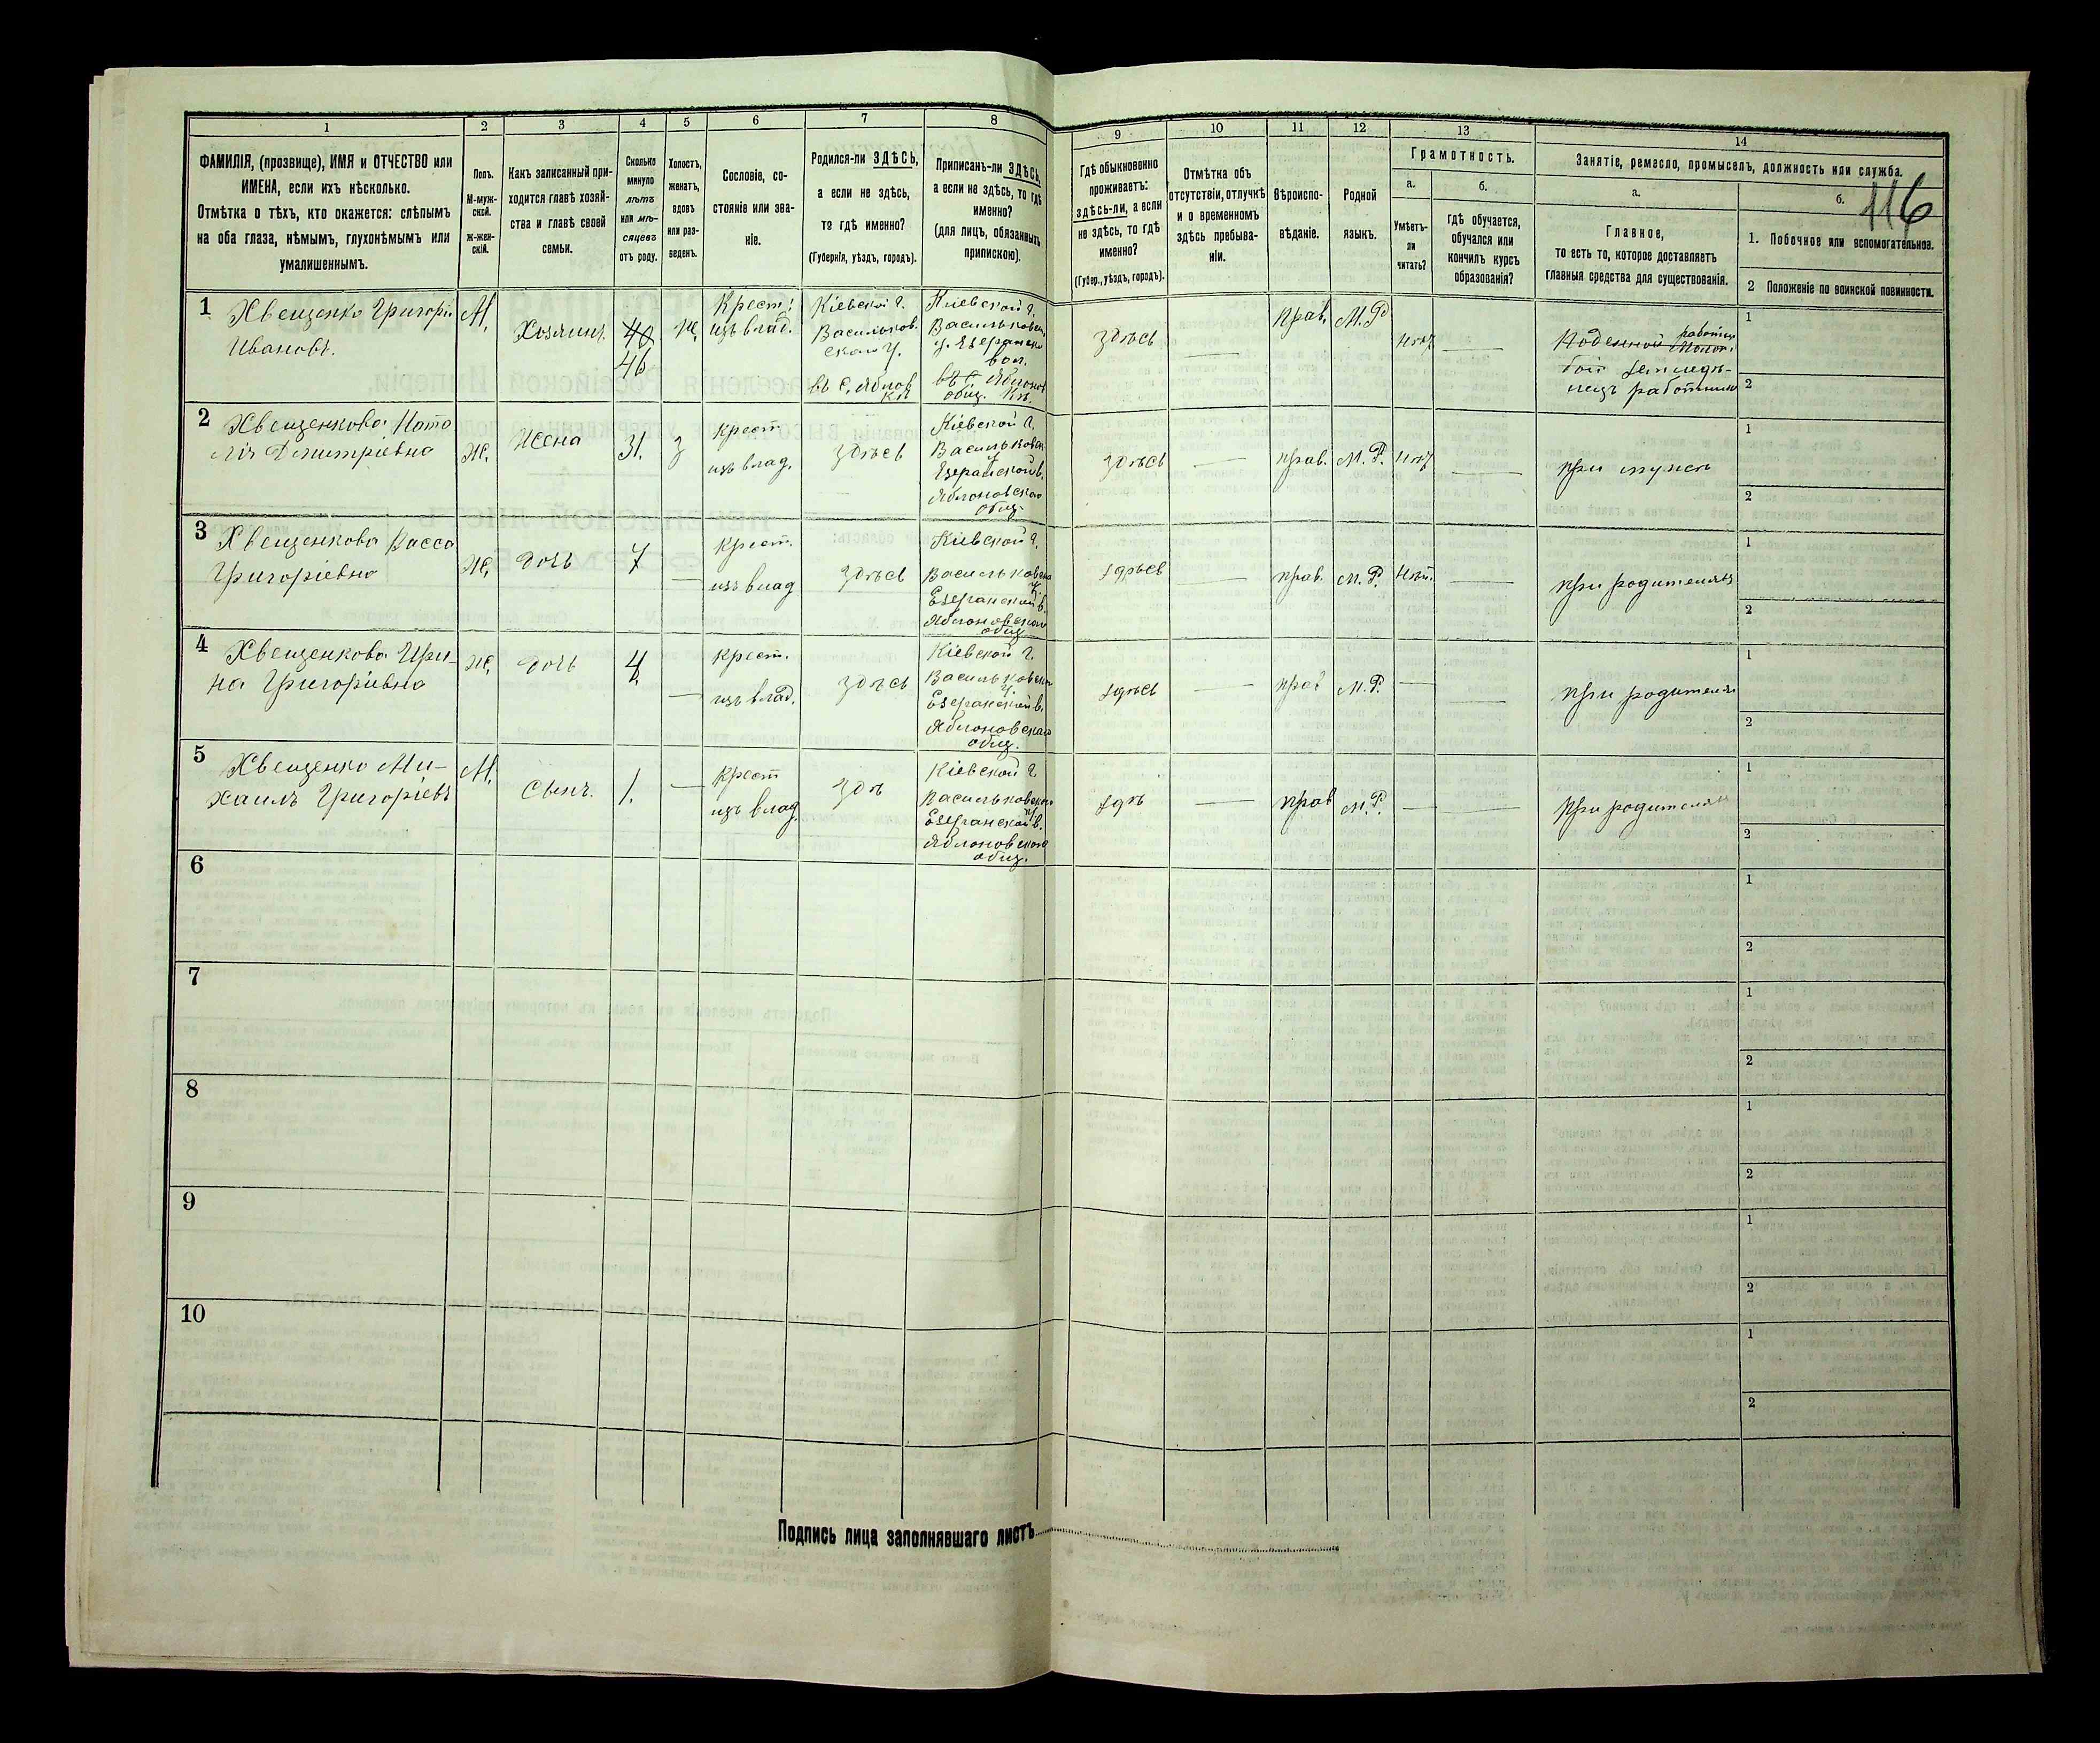 1 2 3 4 5 6 7 8 9 10 11 12 13 14
ФАМИЛІЯ, (прозвище), ИМЯ и ОТЧЕСТВО или
ИМЕНА, если ихъ нѣсколько.
Отмѣтка о тѣхъ, кто окажется: слѣпымъ
на оба глаза, нѣмымъ, глухонѣмымъ или
умалишеннымъ.
Полъ.
М-муж-
ской.
Ж-жен-
скій.
Какъ записанный при-
ходится главѣ хозяй-
ства и главѣ своей
семьи.
Сколько
минуло
лѣтъ
или мѣ-
сяцевъ
отъ роду.
Холостъ,
женатъ,
вдовъ
или раз-
веденъ.
Сословіе, со-
стояніе или зва-
ніе.
Родился-ли ЗДѢСЬ,
а если не здѣсь,
то гдѣ именно?
(Губернія, уѣздъ, городъ).
Приписанъ-ли ЗДѢСЬ,
а если не здѣсь, то гдѣ
именно?
(для лицъ, обязанныхъ
припискою).
Гдѣ обыкновенно
проживаетъ:
здѣсь-ли, а если
не здѣсь, то гдѣ
именно?
(Губер., уѣздъ, городъ).
Отмѣтка объ
отсутствіи, отлучкѣ
и о временномъ
здѣсь пребыва-
ніи.
Вѣроиспо-
вѣданіе.
Родной
языкъ.
Грамотность.
а.
Умѣетъ-
ли
читать?
б.
гдѣ обучается,
обучался или
кончилъ курсъ
образованія?
Занятіе, ремесло, промыселъ, должность или служба.
а.
Главное,
то есть то, которое доставляетъ
главныя средства для существованія.
б.
116
1. Побочное или вспомогательное.
2 Положеніе по воинской повинности.
1
Хвещенко Григорій
Ивановъ.
М.
Хозяинъ.
40
46
ж.
Крест.
изъ влад.
Кіевской г.
Васильков-
скаго у.
въ с. Яблоновкѣ
Кіевской г.
Васильковск.
у. Езеранской
вол.
въ с. Яблонов-
общ. кѣ.
здѣсь
—
прав.
М.Р.
нѣтъ
—
земледѣ-
лецъ работникъ
1
2
2
Хвещенкова Ната
лія Дмитріевна
Ж.
Жена
31.
з
крест
изъ влад.
здѣсь
Кіевской г.
Васильковск.
Езеранской в.
Яблоновскаго
общ.
здѣсь
—
прав.
М.Р.
нѣтъ
—
при мужѣ
1
2
3
Хвещенкова Васса
Григоріевна
Ж.
дочь
7
—
крест.
изъ влад
здѣсь
Кіевской г.
Васильковск.
у.
Езеранской в.
Яблоновскаго
общ
здѣсь
—
прав.
М.Р.
нѣт.
—
при родителяхъ
1
2
4
Хвещенкова Ири-
на Григоріевна
Ж.
дочь
4.
—
крест.
изъ влад.
здѣсь
Кіевской г.
Васильковск.
у.
Езеранской в.
Яблоновскаго
общ.
здѣсь
—
прав
М.Р.
—
—
при родителяхъ
1
2
5
Хвещенко Ми-
хаилъ Григоріевъ
М.
Сынъ.
1.
—
крест
изъ влад
здѣ
Кіевской г.
Васильковск.
у.
Езеранской в.
Яблоновскаго
общ.
здѣ
—
прав
М.Р.
—
—
при родителяхъ
1
2
6
1
2
7
1
2
8
1
2
9
1
2
10
1
2
Подпись лица заполнявшаго листъ